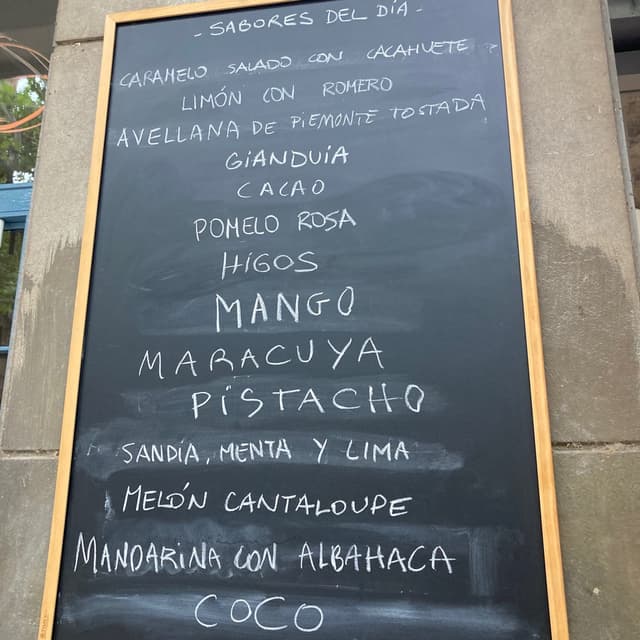 - SABORES DEL DÍA -
CARAMELO SALADO CON CACAHUETE
LIMÓN CON ROMERO
AVELLANA DE PIEMONTE TOSTADA
GIANDUIA
CACAO
POMELO ROSA
HIGOS
MANGO
MARACUYA
PISTACHO
SANDÍA, MENTA Y LIMA
MELÓN CANTALOUPE
MANDARINA CON ALBAHACA
COCO